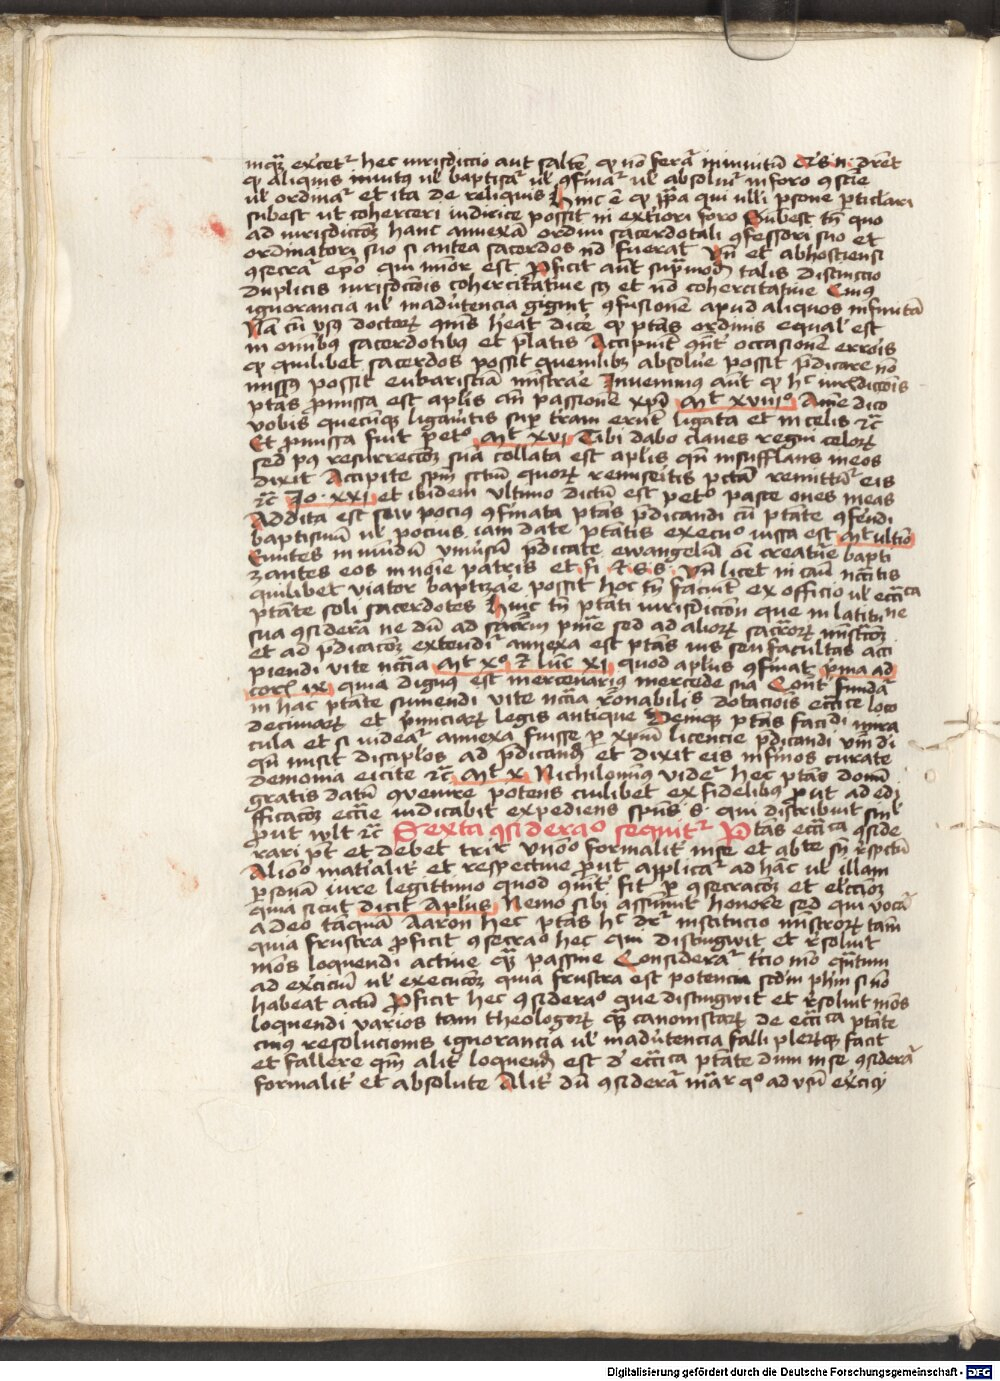 inquam exercetur hec iurisdiccio aut saltem qd nō ferat̄ in inuitū
qd aliquis inuitus ul baptisat̄ ul ꝯfirmat̄ ul absoluit̄ in foro ꝯscie
ul ordinat̄ et ita de reliquis Hinc ē qd papa qui ulli psone pticlari
subest ut coherceri iuridice possit in extiori foro Subest tn̄ quo
ad iurisdiccōꝫ hanc annexā ordini sacerdotali ꝯfessori suo et
ordinatori suo si antea sacerdos nō fuerat Vn̄ et ab hostiensi
ꝯsecrat̄ epō qui minor est Pficit aūt supmodū talis distinccio
duplicis iurisdiccōis cohercitatiue scꝫ et nō cohercitatiue Cuius
ignorancia ul inaduertencia gignit ꝯfusionē apud aliquos infinitā
Nā cū usꝫ doctorꝫ ꝯmunis heat dicē qd ptās ordinis equal' est
in omībus sacerdotibus et platis Accipiūt occasionē erroris
qd quilibet sacerdos possit quemlibꝫ absoluē possit pdicare nō
missus possit eukaristiā mistrare Inuenimus aūt qd hec iurisdiccōis
ptās pmissa est aplis an̄ passionē xp̄i Mt xviii° Amē dico
vobis quecūꝫ ligaueritis sup terram erunt ligata et in celis ⁊c̄
Et pmissa fuit pet° Mt xvi Tibi dabo claues regni celorꝫ
sed p9 resurreccōꝫ suā collata est aplis qn̄ insufflans in eos
dixit Accipite spm̄ sctūm quorꝫ remiseritis pctā remittūt̄ eis
⁊c̄ Jo. xxi et ibidem ultimo dictū est pet° pasce oues meas
Addita est seu pocius ꝯfirmata ptās pdicandi cū ptate ꝯferendi
baptismū ul pocius iam date ptatis execuo iussa est Mt ultio
Euntes in mūdū vniūsum pdicate ewangeliū oī creature bapti
zantes eos in noīe patris et fi ⁊ s s Vn̄ licet in casu nc̄citatis
quilibet viator baptizare possit hoc tn̄ faciunt ex officio ul eccīca
ptate soli sacerdotes Huic tn̄ ptati iurisdiccōn que in latitudine
sua ꝯsiderat̄ ne dū ad sacrm̄ pnie sed ad aliorꝫ sacrorꝫ mistracōꝫ
et ad pdicacōꝫ extendit̄ annexa est ptās ius seu facultas acci
piendi vite nccīa Mt x° ⁊ luc xi quod aplus ꝯfirmat prima ad
corī ix quia dignus est mercenarius mercede sua Cōuenit fundar̄
in hac ptate sumendi vite nccīa raōnabilis dotaciōis eccīice loco
decimarꝫ et primiciarꝫ legis antique Denique ptās faciēdi mira
cula et si uideat̄ annexa fuisse p xpm̄ licencie pdicandi vm̄ di
qn̄ misit discipulos ad pdicandū et dixit eis infirmos curate
demonia eicite ⁊c̄ Mt x Nichilominus videt̄ hec ptās donū
gratis datū ꝯuenire potens cuilibet ex fidelibus put ad edi
fficacōꝫ eccīe iudicabit expediens spūs s. qui distribuit singul'
put vult ⁊c̄ Sexta ꝯsiderao sequit̄ Ptās eccīca ꝯside
rari pt et debet trir Vno° formalit̄ in se et ab te sn̄ respectū
Alio° matīalit̄ et respectiue put applicat̄ ad hanc ul illam
psonam iure legittimo quod ꝯmūit̄ fit p ꝯsecracōꝫ et eleccōꝫ
quia sicut dicit Aplus Nemo sibi assumit honore sed qui vocat̄
a deo tamquā Aaron hec ptās hec dr̄ institucio mistrorꝫ tam
quia frustra pficit ꝯsecrao hec qui distingwit et resoluit
mōs loquendi actiue quā passiue Considerat̄ t'cio mō quātum
ad exerciciū ul execucōꝫ quia frustra est potencia scdm phm si nō
habeat actū Pficit hec ꝯsiderao que distingwit et resoluit mōs
loquendi varios tam theologorꝫ quā canonistarꝫ de eccīca ptate
cuius resolucionis ignorancia ul inaduertencia falli plerosque facit
et fallere qm̄ alit̄ loquendū est de eccīca ptate dum in se ꝯsiderat̄
formalit̄ et absolute Alit̄ dū ꝯsiderat̄ quo ad usū exercicij
Digitalisierung gefördert durch die Deutsche Forschungsgemeinschaft - DFG